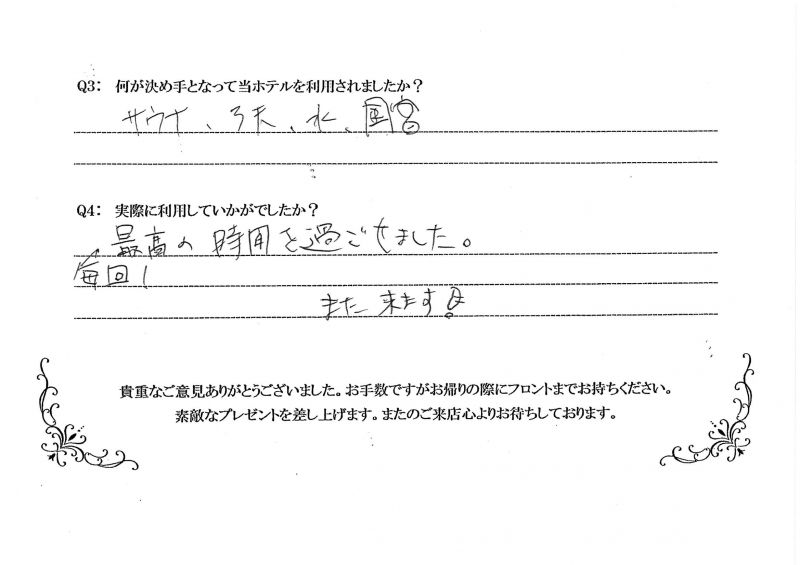 Q3: 何が決め手となって当ホテルを利用されましたか?
サウナ、3天、水、
Q4: 実際に利用していかがでしたか?
最高の時間を過ごせました。
毎回!
また来ます!
貴重なご意見ありがとうございました。お手数ですがお帰りの際にフロントまでお持ちください。
素敵なプレゼントを差し上げます。またのご来店心よりお待ちしております。